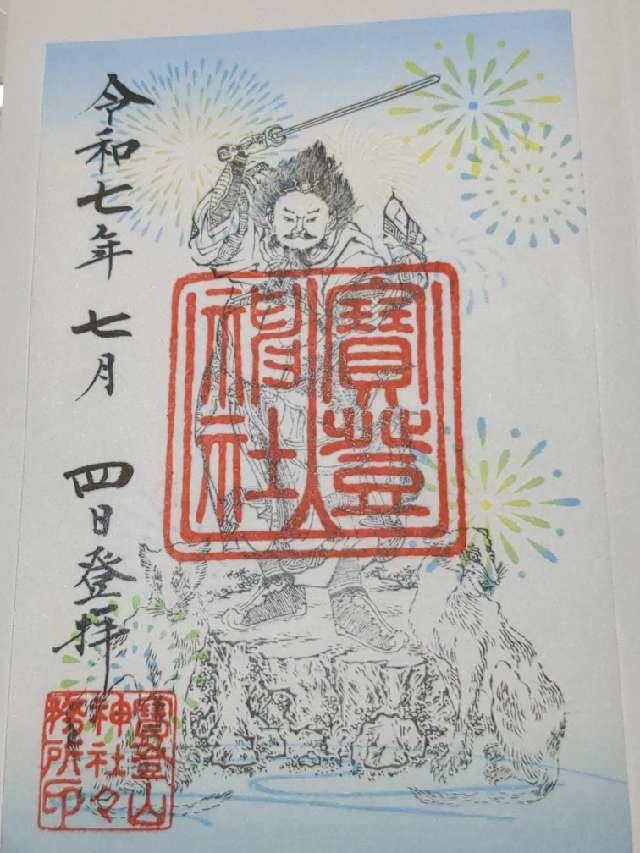 寶登山
神社
令和七年 七月 四日登拝
寶登山
神社々
務所印